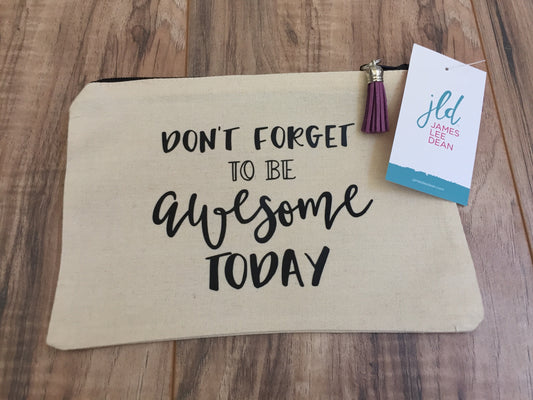 DON'T FORGET
TO BE
awesome
TODAY
jld.
JAMES
LEE
DEAN